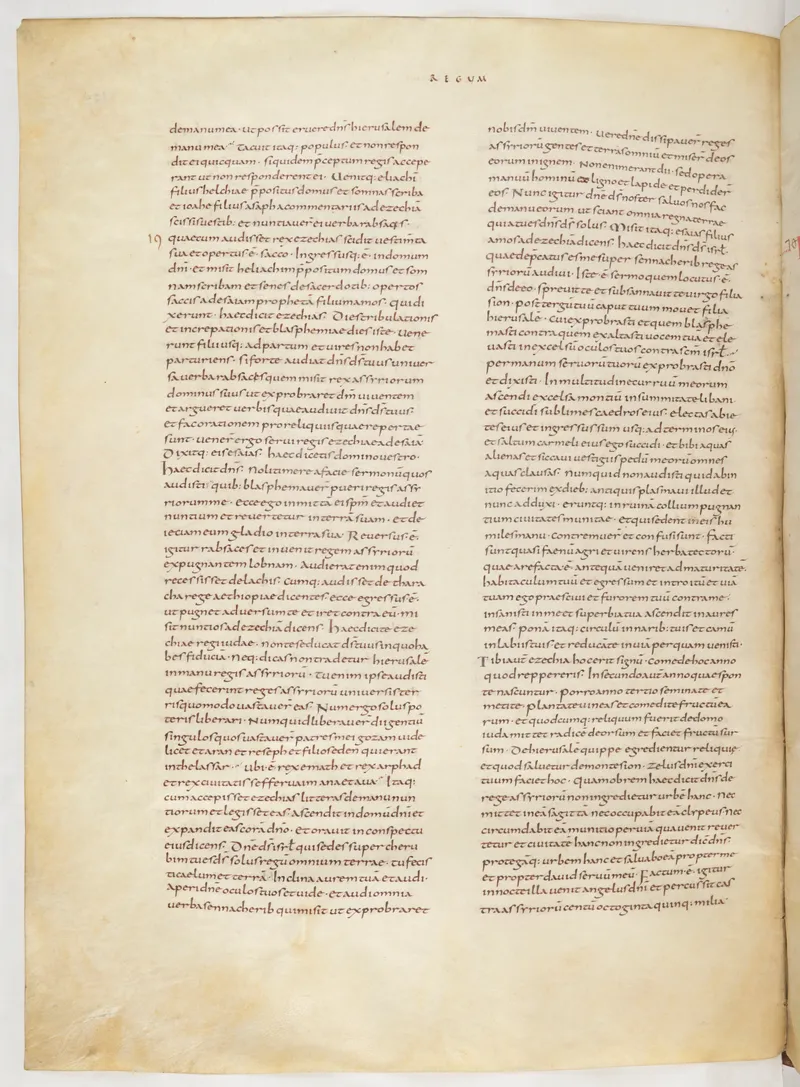 REGUM
demanumea· ut possit eruere dn̄s hierusalem de
manu mea· Tacuit itaq: populus et non respon
dit ei quicquam· siquidem p̄ceptum regis accepe
rant ut non responderent ei· Uenitq: eliachī
filius helchiae p̄positus domus et somnas scriba
et ioahe filius asaph a commentariis ad ezechiā
scissis uestib: et nuntiauer̄ ei uerba rabsaces·
19 quae cum audisset rex ezechias scidit uestim̄ta
sua et opertus ē· sacco· Ingressusq: ē· in domum
dn̄i· et misit heliachim p̄positum domus et som
nam scribam et senes de sacerdotib: opertos
saccis ad esaiam prophetā filium amos· qui di
xerunt· haec dicit ezechias· Dies tribulationis
et increpationis et blasphemiae dies iste· uene
runt filii usq: ad partum et uires non habet
parturiens· si forte audiat dn̄s d̄s tuus uniuer
sa uerba rabsaces quem misit rex assyriorum
dominus suus ut exprobraret dm̄ uiuentem
et argueret uerbis quae audiuit dn̄s d̄s tuus·
et fac orationem pro reliquiis quae repertae
sunt· uener̄ ergo serui regis ezechiae ad esaiā·
Dixitq: eis esaias· haec dicetis domino uestro·
haec dicit dn̄s· Noli timere a facie sermonū quos
audisti· quib: blasphemauer̄ pueri regis assy
riorum me· ecce ego inmittā ei sp̄m et audiet
nuntium et reuertetur in terrā suam· et de
iciam eum gladio in terra sua· Reuersus ē·
igitur rabsaces et inuenit regem assyriorū
expugnantem lobnam· Audierat enim quod
recessisset de lachis· Cumq: audisset de thara
cha rege aethiopiae dicentes ecce egressus ē·
ut pugnet aduersum te et iret contra eū· mi
sit nuntios ad ezechiā dicens· haec dicite eze
chiae regi iudae· non te seducat d̄s tuus in quo ha
bes fiducia· neq: dicas non tradetur hierusale
in manu regis assyriorū· Tu enim ipse audisti
quae fecerint reges assyriorū uniuersis ter
ris quomodo uastauer̄ eas· Num ergo solus po
teris liberari· Numquid liberauer̄ dii gentiū
singulos quos uastauer̄ patres mei gozam uide
licet et aran et reseph et filios eden qui erant
in thelassar· ubi ē· rex emath et rex arphad
et rex ciuitatis seffaruaim ana et aua· Itaq:
cum accepisset ezechias litteras de manu nun
tiorum et legisset eas ascendit in domū dn̄i et
expandit eas corā dn̄o· et orauit in conspectu
eius dicens· Dn̄e d̄s isrł· qui sedes super cheru
bim tu es d̄s solus regū omnium terrae· tu fecis
ti caelum et terrā· Inclina aurem tuā et audi·
Aperi dn̄e oculos tuos et uide· et audi omnia
uerba sennacherib qui misit ut exprobraret
nobis dm̄ uiuentem· Uere dn̄e dissipauer̄ reges
assyriorū gentes et terras omniū et miser̄ deos
eorum in ignem· Non enim erant dii· sed opera
manuū hominū e ligno et lapide et perdider̄
eos· Nunc igitur dn̄e d̄s noster saluos nos fac
de manu eorum ut sciant omnia regna terrae
quia tu es dn̄s d̄s solus· Misit itaq: esaias filius
amos ad ezechiā dicens· haec dicit dn̄s d̄s isrł·
quae depcatus es me super sennacherib rege as
syriorū audiui· Iste ē· sermo quem locutus ē·
dn̄s de eo· spreuit te et subsannauit te uirgo filia
sion· post tergū tuū caput suum mouet filia
hierusalē· cui exprobrasti et quem blasphe
masti contra quem exaltasti uocem tua et ele
uasti in excelsū oculos tuos contra scm̄ isrł·
per manum seruorū tuorū exprobrasti dn̄o
et dixisti· In multitudine curruū meorum
ascendi excelsa montiū in summitate libani
et succidi sublimes caedros eius· electas abie
tes eius et ingressus sum usq: ad terminos eius·
et saltum carmeli eius ego succidi· et bibi aquas
alienas et siccaui uestigiis pedū meorū omnes
aquas clausas· Numquid non audisti quid ab in
itio fecerim ex dieb: antiquis plasmaui illud et
nunc adduxi· eruntq: in ruinā collium pugnan
tium ciuitates munitae· et qui sedent in eis hu
miles manu· contremuer̄ et confusi sunt· facti
sunt quasi faenū agri et uirens herba tectorū·
quae arefacta ē· antequā ueniret ad maturitatē·
habitaculum tuū et egressum et introitū et uiā
tuam ego praesciui et furorem tuū contra me·
insanisti in me et superbia tua ascendit in aures
meas· ponā itaq: circulū in narib: tuis et camū
in labiis tuis et reducā te in uiā per quam uenisti·
Tibi aut̄ ezechia hoc erit signū· Comede hoc anno
quod reppereris· In secundo aut̄ anno quae spon
te nascuntur· porro anno tertio seminate et
metite· plantate uineas et comedite fructū ea
rum· et quodcumq: reliquum fuerit de domo
iuda mittet radicē deorsum et faciet fructū sur
sum· De hierusalē quippe egredientur reliquię
et quod saluetur de monte sion· zelus dn̄i exerci
tuum faciet hoc· Quam ob rem haec dicit dn̄s de
rege assyriorū non ingredietur urbē hanc· nec
mittet in eā sagittā nec occupabit eā clypeus nec
circumdabit eā munitio per uiā qua uenit reuer
tetur et ciuitatē hanc non ingredietur dic̄ dn̄s·
protegāq: urbem hanc et saluabo eā propter me
et propter dauid seruū meū· Factum ē· igitur
in nocte illa uenit angelus dn̄i et percussit cas
tra assyriorū centū octoginta quinq: milia·